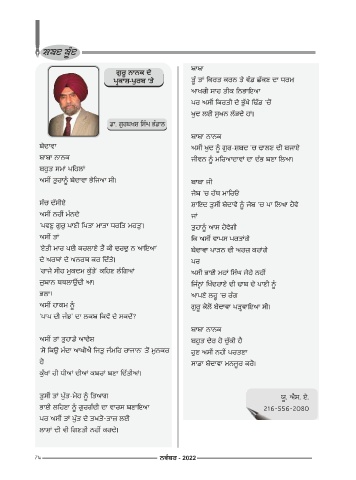 ਸ਼ਬਦ ਬੂੰਦ
ਗੁਰੂ ਨਾਨਕ ਦੇ
ਪ੍ਰਕਾਸ਼-ਪੁਰਬ 'ਤੇ
ਡਾ. ਗੁਰਬਖ਼ਸ਼ ਸਿੰਘ ਭੰਡਾਲ
ਬੇਦਾਵਾ
ਬਾਬਾ ਨਾਨਕ
ਬਹੁਤ ਸਮਾਂ ਪਹਿਲਾਂ
ਅਸੀਂ ਤੁਹਾਨੂੰ ਬੇਦਾਵਾ ਭੇਜਿਆ ਸੀ।
ਸੱਚ ਦੱਸੀਏ
ਅਸੀਂ ਨਹੀਂ ਮੰਨਦੇ
'ਪਵਣੁ ਗੁਰੂ ਪਾਣੀ ਪਿਤਾ ਮਾਤਾ ਧਰਤਿ ਮਹਤੁ'।
ਅਸੀਂ ਤਾਂ
'ਏਤੀ ਮਾਰ ਪਈ ਕਰਲਾਣੇ ਤੈਂ ਕੀ ਦਰਦੁ ਨ ਆਇਆ'
ਦੇ ਅਰਥਾਂ ਦੇ ਅਨਰਥ ਕਰ ਦਿੱਤੇ।
'ਰਾਜੇ ਸੀਹ ਮੁਕਦਮ ਕੁੱਤੇ' ਕਹਿਣ ਲੱਗਿਆਂ
ਜ਼ੁਬਾਨ ਥਥਲਾਉਂਦੀ ਆ।
ਭਲਾ!
ਅਸੀਂ ਹਾਕਮ ਨੂੰ
'ਪਾਪ ਦੀ ਜੰਞ' ਦਾ ਲਕਬ ਕਿਵੇਂ ਦੇ ਸਕਦੇਂ?
ਅਸੀਂ ਤਾਂ ਤੁਹਾਡੇ ਆਦੇਸ਼
'ਸੋ ਕਿਉ ਮੰਦਾ ਆਖੀਐ ਜਿਤੁ ਜੰਮਹਿ ਰਾਜਾਨ' ਤੋਂ ਮੁਨਕਰ
ਹੋ
ਕੁੱਖਾਂ ਹੀ ਧੀਆਂ ਦੀਆਂ ਕਬਰਾਂ ਬਣਾ ਦਿੱਤੀਆਂ।
ਤੁਸੀਂ ਤਾਂ ਪੁੱਤ-ਮੋਹ ਨੂੰ ਤਿਆਗ
ਭਾਈ ਲਹਿਣਾ ਨੂੰ ਗੁਰਗੱਦੀ ਦਾ ਵਾਰਸ ਬਣਾਇਆ
ਪਰ ਅਸੀਂ ਤਾਂ ਪੁੱਤ ਦੇ ਤਖਤੋ-ਤਾਜ ਲਈ
ਲਾਸ਼ਾਂ ਦੀ ਵੀ ਗਿਣਤੀ ਨਹੀਂ ਕਰਦੇ।
ਬਾਬਾ
ਤੂੰ ਤਾਂ ਕਿਰਤ ਕਰਨ ਤੇ ਵੰਡ ਛੱਕਣ ਦਾ ਧਰਮ
ਆਖਰੀ ਸਾਹ ਤੀਕ ਨਿਭਾਇਆ
ਪਰ ਅਸੀਂ ਕਿਰਤੀ ਦੇ ਭੁੱਖੇ ਢਿੱਡ 'ਚੋਂ
ਖੁਦ ਲਈ ਸੁਖਨ ਲੱਭਦੇ ਹਾਂ।
ਬਾਬਾ ਨਾਨਕ
ਅਸੀਂ ਖੁਦ ਨੂੰ ਗੁਰ-ਸ਼ਬਦ 'ਚ ਢਾਲਣ ਦੀ ਬਜਾਏ
ਜੀਵਨ ਨੂੰ ਮਰਿਆਦਾਵਾਂ ਦਾ ਦੰਭ ਬਣਾ ਲਿਆ।
ਬਾਬਾ ਜੀ
ਜੇਬ 'ਚ ਹੱਥ ਮਾਰਿਓ
ਸ਼ਾਇਦ ਤੁਸੀਂ ਬੇਦਾਵੇ ਨੂੰ ਜੇਬ 'ਚ ਪਾ ਲਿਆ ਹੋਵੇ
ਜਾਂ
ਤੁਹਾਨੂੰ ਆਸ ਹੋਵੇਗੀ
ਕਿ ਅਸੀਂ ਵਾਪਸ ਪਰਤਾਂਗੇ
ਬੇਦਾਵਾ ਪਾੜਨ ਦੀ ਅਰਜ਼ ਕਰਾਂਗੇ
ਪਰ
ਅਸੀਂ ਭਾਈ ਮਹਾਂ ਸਿੰਘ ਜੇਹੇ ਨਹੀਂ
ਜਿੰਨ੍ਹਾਂ ਖਿਦਰਾਣੇ ਦੀ ਢਾਬ ਦੇ ਪਾਣੀ ਨੂੰ
ਆਪਣੇ ਲਹੂ 'ਚ ਰੰਗ
ਗੁਰੂ ਕੋਲੋਂ ਬੇਦਾਵਾ ਪੜ੍ਹਵਾਇਆ ਸੀ।
ਬਾਬਾ ਨਾਨਕ
ਬਹੁਤ ਦੇਰ ਹੋ ਚੁੱਕੀ ਹੈ
ਹੁਣ ਅਸੀਂ ਨਹੀਂ ਪਰਤਣਾ
ਸਾਡਾ ਬੇਦਾਵਾ ਮਨਜ਼ੂਰ ਕਰੋ।
ਯੂ. ਐੱਸ. ਏ.
216-556-2080
ਨਵੰਬਰ - 2022